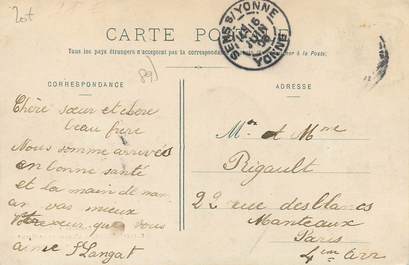 Zost
89)
CARTE POSTALE
Tous les pays étrangers n'acceptent pas la correspondance à la Poste.
SENS S/YONNE
YONNE
CORRESPONDANCE
ADRESSE
Chère sœur et chere
beau frère
Nous somme arrivés
en bonne santé
et la main de
va mieux
sœur qui vous
aime S Langat
Mr et Mme
Rigault
22 rue des blancs
Manteaux
Paris
4em arr